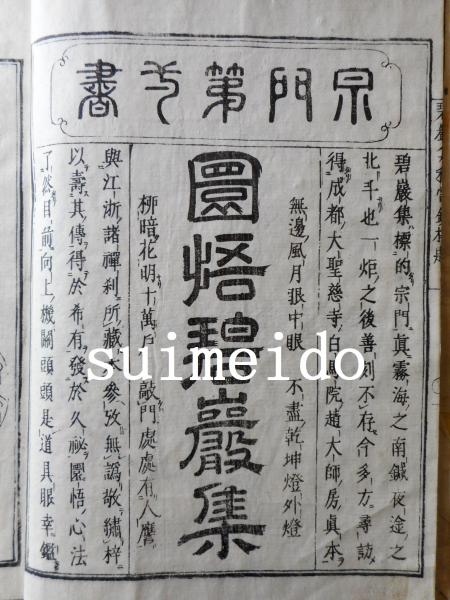 宗門第一書
碧巖集標的宗門眞霧海之南鍼夜途之
北斗也一炬之後善刻不存今多方尋訪
得成都大聖慈寺白馬院趙大師房眞本
無邊風月眼中眼不盡乾坤燈外燈
圜悟碧巖集
柳暗花明十萬戶敲門處處有人譍
與江浙諸禪刹所藏本參攷無譌敬繡梓
以壽其傳得於希有發於久祕圜悟心法
了然目前向上機關頭頭是道具眼幸鑑
suimeido